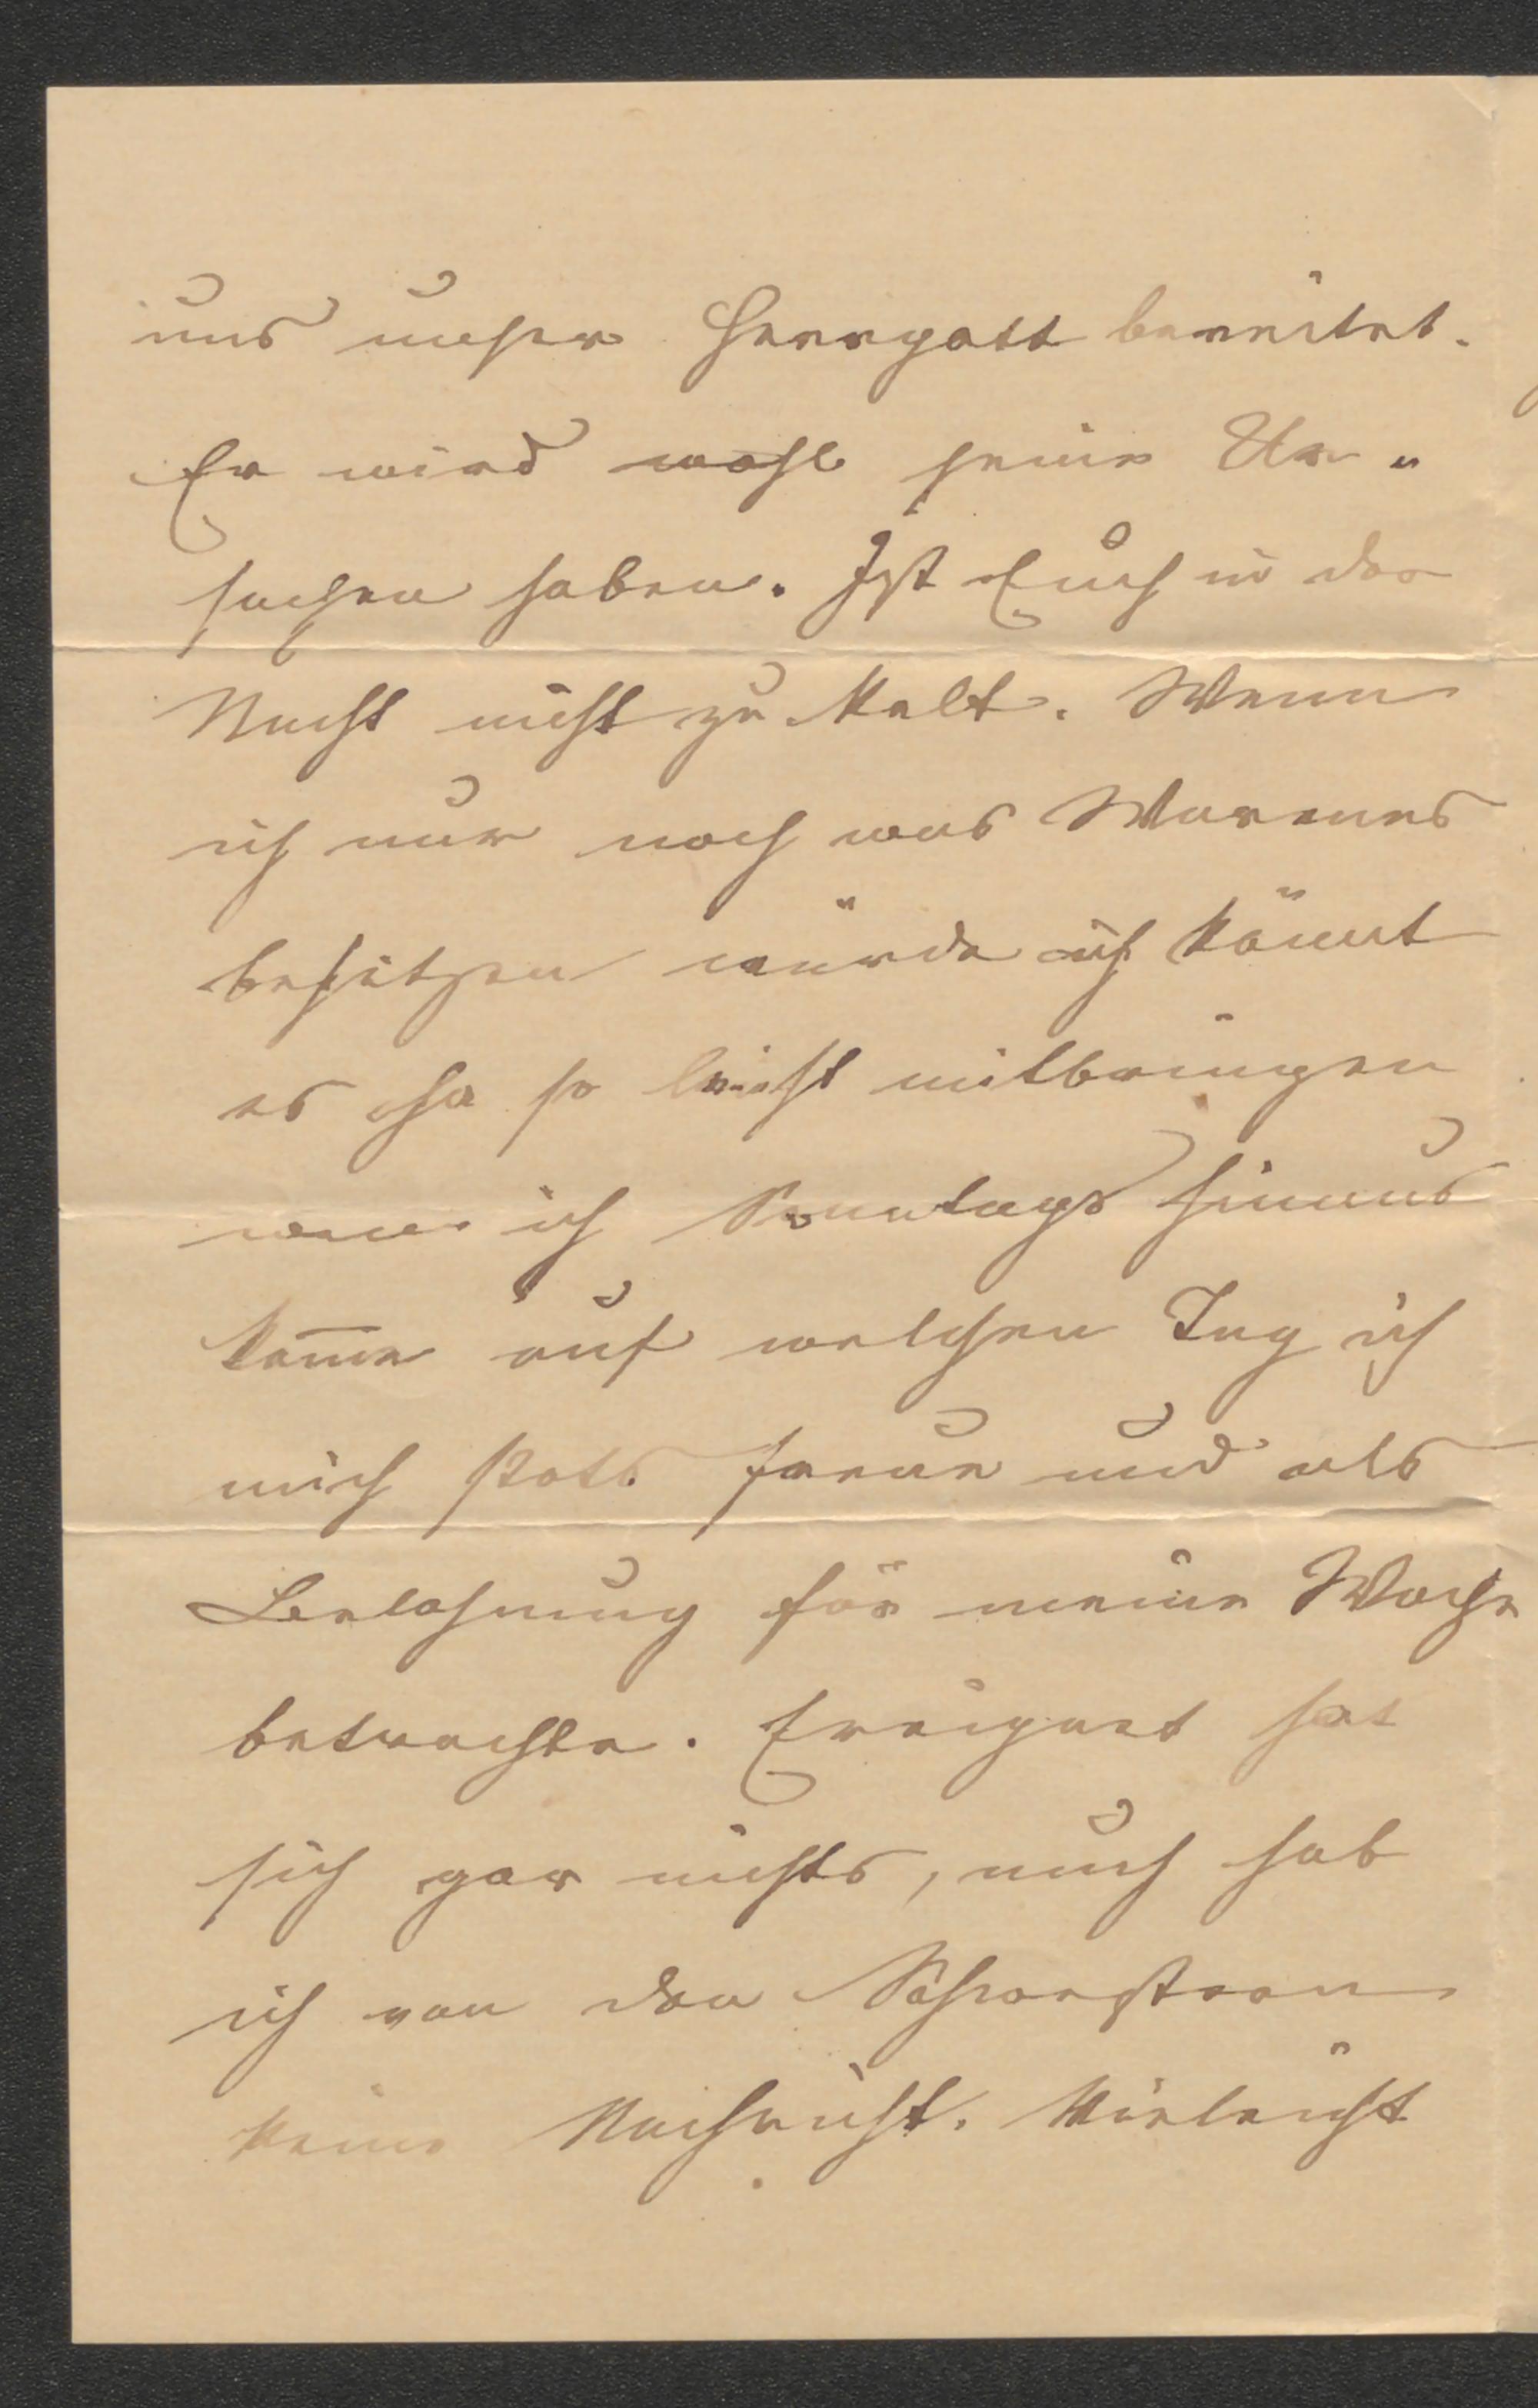 uns unser Herrgott bereitet.
Er wird wohl seine Ur„
sachen haben. Ist Euch in der
Nacht nicht zu Kalt. Wenn
ich nur noch was Warmes
besitzen würde ich könnt
es ja so leicht mitbringen
wenn ich Sonntags hinaus
kom̅e auf welchen Tag ich
mich stets freue und als
Berlohnung für meine Woche
betrachte. Ereignet hat
sich gar nichts, auch hab
ich von den Schwestern
keine Nachricht. Vieleicht